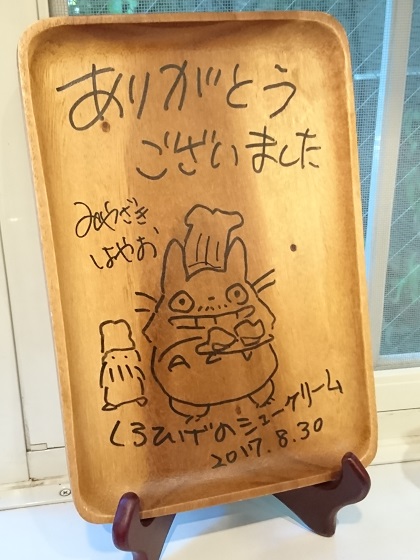 ありがとう
ございました
みやざき
はやお
くろひげのシュークリーム
2017.8.30